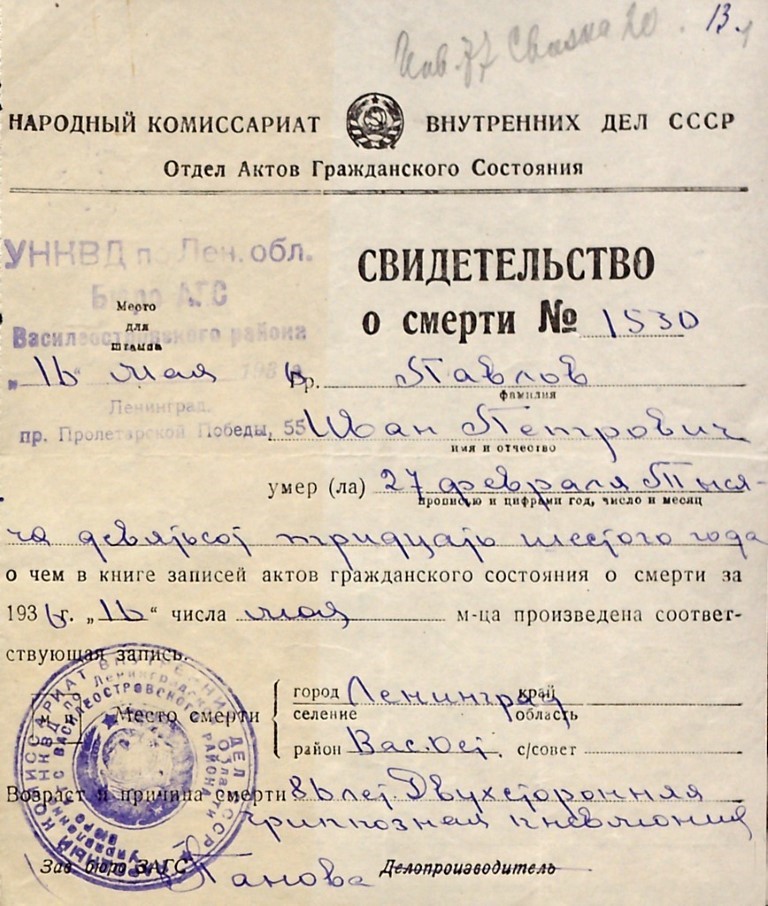 Инв. 77 Связка 20. 13.
НАРОДНЫЙ КОМИССАРИАТ ВНУТРЕННИХ ДЕЛ СССР
Отдел Актов Гражданского Состояния
УНКВД по Лен. обл.
Бюро АГС
Василеостровского района
Место
для
штампа
„16“ мая 1936
Ленинград.
пр. Пролетарской Победы, 55
СВИДЕТЕЛЬСТВО
о смерти № 1530
Гр. Павлов
фамилия
Иван Петрович
имя и отчество
умер (ла) 27 февраля Тыся-
прописью и цифрами год, число и месяц
ча девятьсот тридцать шестого года
о чем в книге записей актов гражданского состояния о смерти за
1936 г. „16“ числа мая м-ца произведена соответ-
ствующая запись.
Место смерти
город Ленинград край
селение область
район Вас. Ост. с/совет
Возраст и причина смерти 86 лет. Двухсторонняя
гриппозная пневмония
Зав. бюро ЗАГС Панова Делопроизводитель